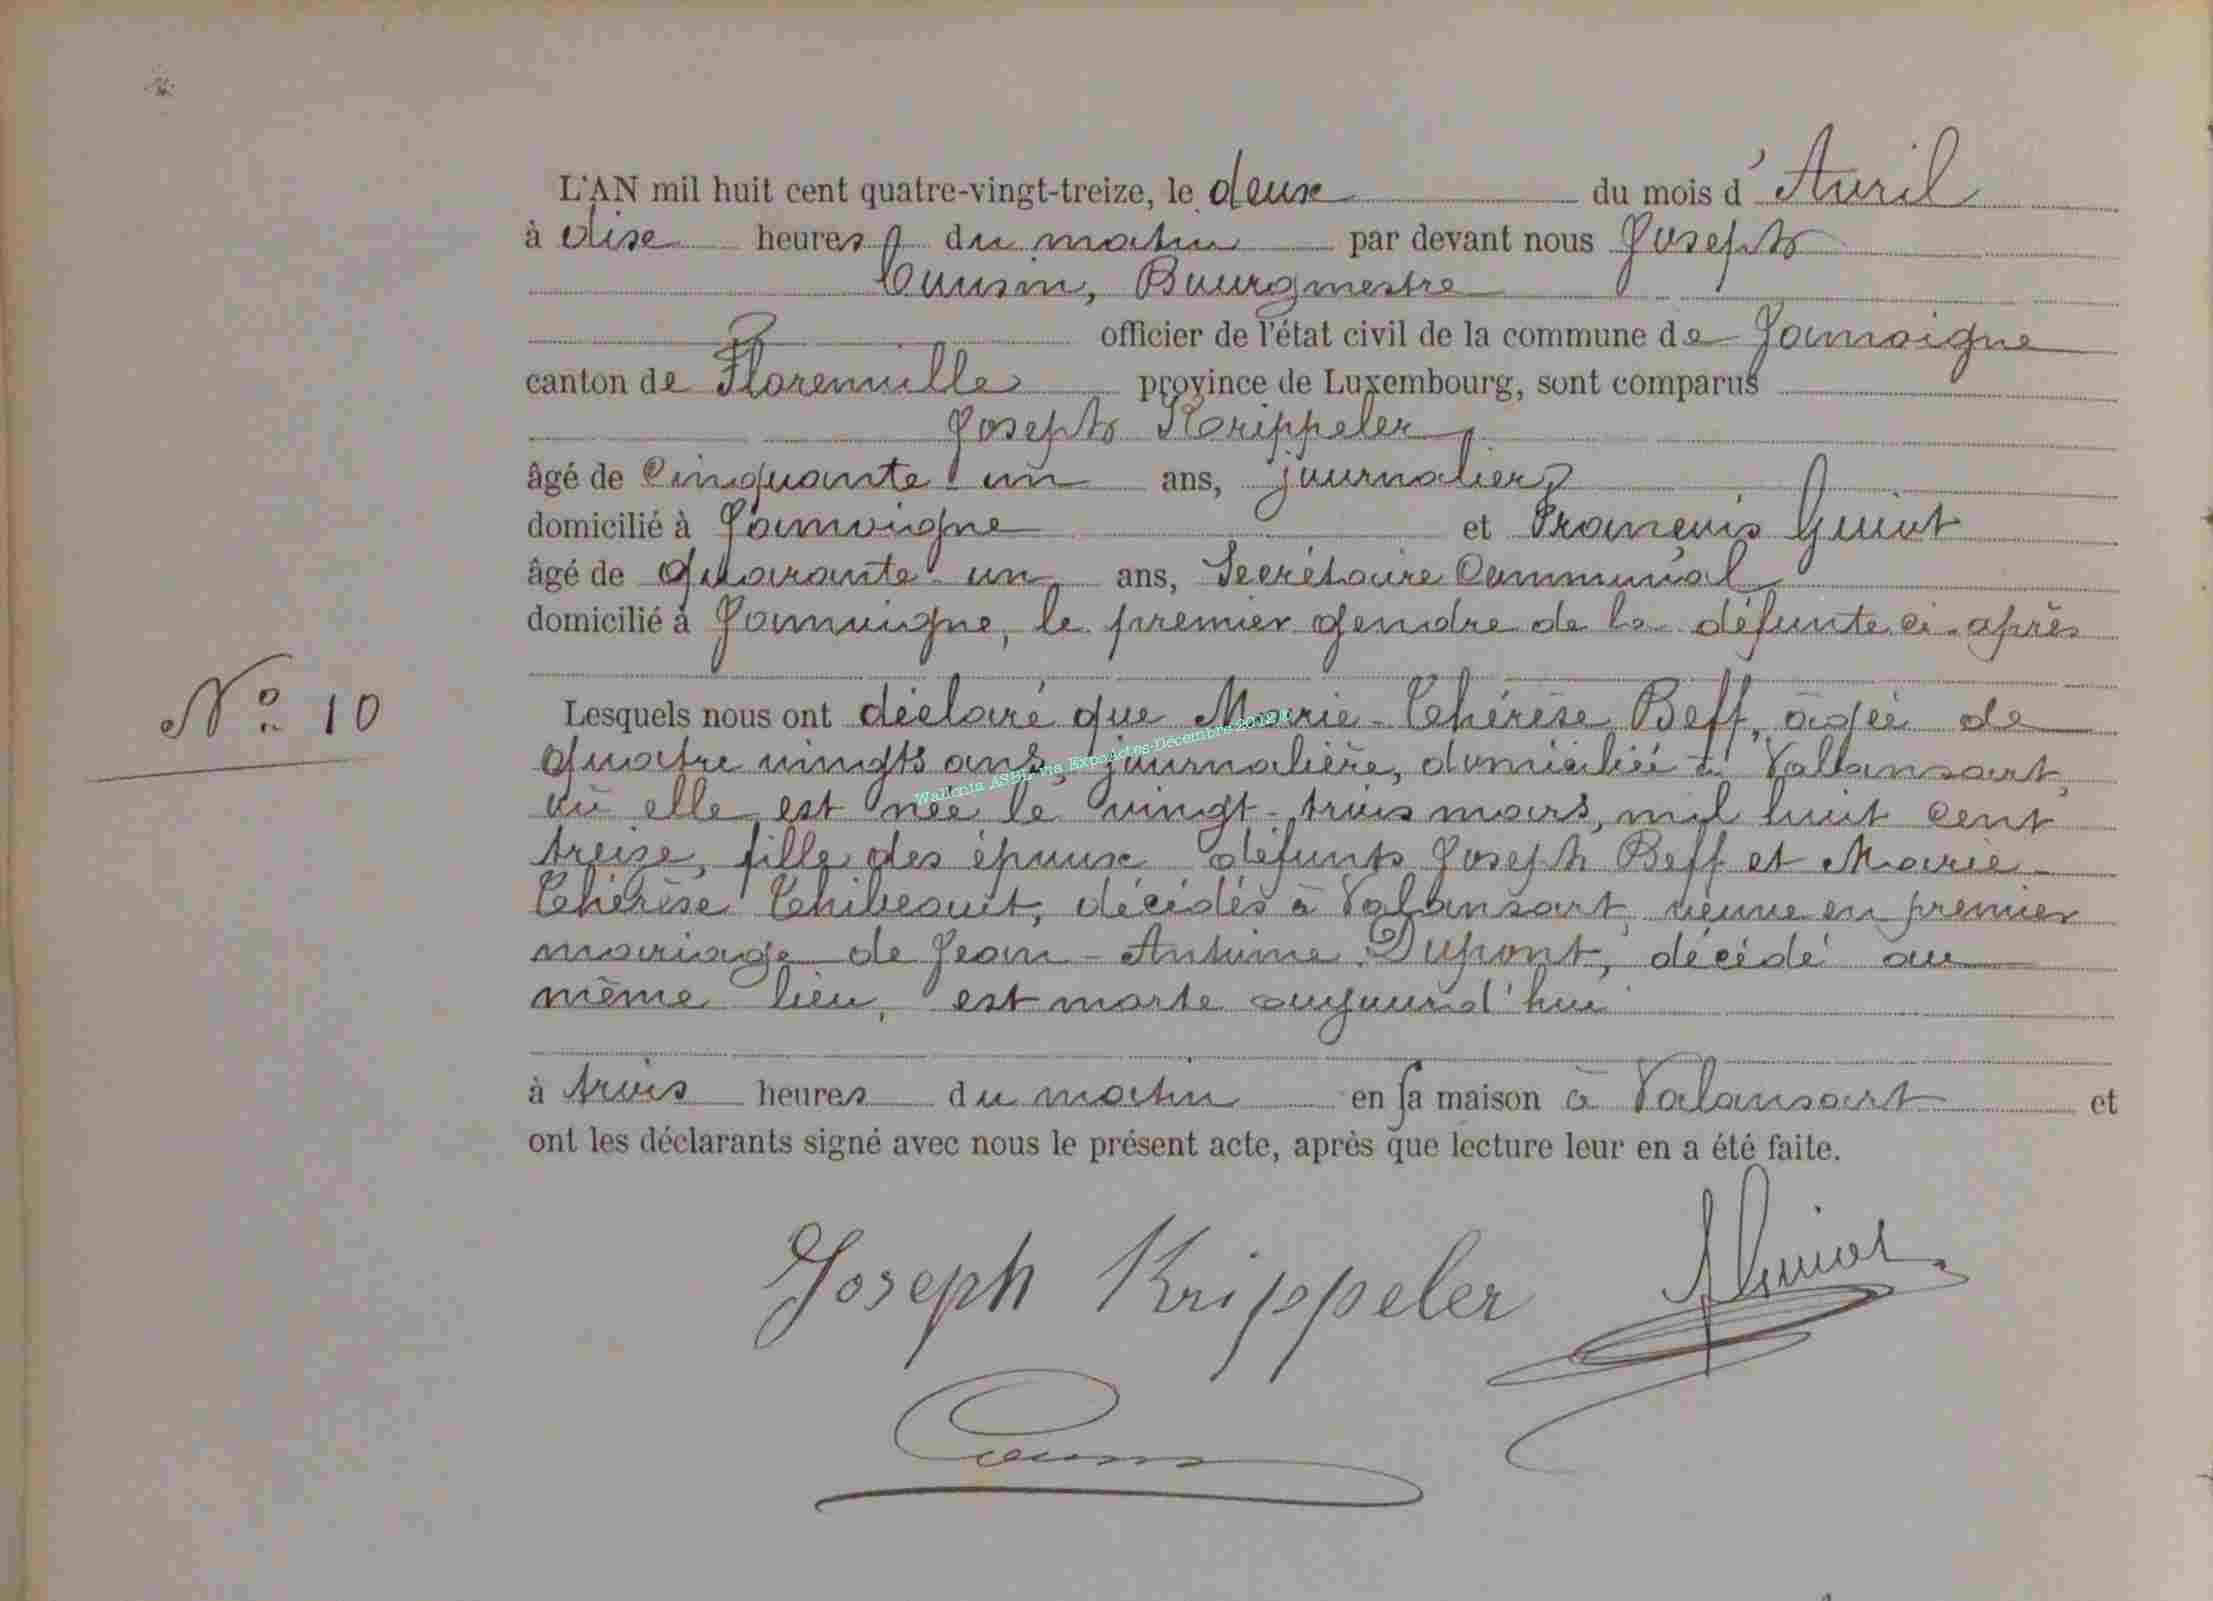 L'AN mil huit cent quatre-vingt-treize, le deux du mois d'Avril
à dix heures du matin par devant nous Joseph
Cousin, Bourgmestre
officier de l'état civil de la commune de Jamoigne
canton de Florenville province de Luxembourg, sont comparus
Joseph Krippeler,
âgé de Cinquante-un ans, journalier,
domicilié à Jamoigne et François Guiot
âgé de quarante-un ans, Secrétaire Communal
domicilié à Jamoigne, le premier gendre de la défunte ci-après
N° 10
Lesquels nous ont déclaré que Marie-Thérèse Beff, âgée de
quatre vingts ans, journalière, domiciliée à Vallansart,
où elle est née le vingt-trois mars, mil huit cent
treize, fille des époux défunts Joseph Beff et Marie-
Thérèse Thibeaut, décédés à Valansart, veuve en premier
mariage de Jean-Antoine Dupont, décédé au
même lieu, est morte aujourd'hui
à trois heures du matin en sa maison à Valansart et
ont les déclarants signé avec nous le présent acte, après que lecture leur en a été faite.
Joseph Krippeler Guiot
Wallonia ASBL via ExpoActes-Décembre